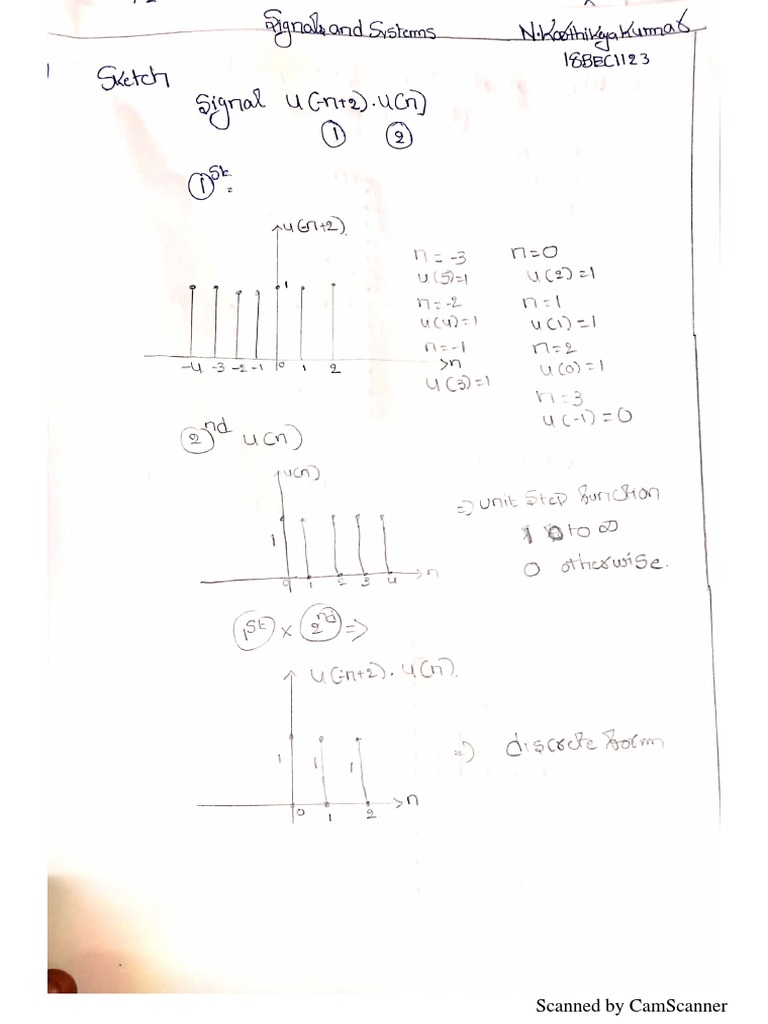 Signals and Systems
N. Karthikeya Kumar
18BEC1123
1
Sketch
Signal u(-n+2).u(n)
① ②
① st
u(-n+2)
n = -3 n=0
u(5)=1 u(2)=1
1
n=-2 n=1
u(4)=1 u(1)=1
n=-1 n=2
>n u(0)=1
-4 -3 -2 -1 0 1 2
u(3)=1
n=3
u(-1)=0
② nd u(n)
u(n)
=> unit step function
1 0 to ∞
1
0 otherwise.
0 1 2 3 4 n
1st x 2nd =>
u(-n+2).u(n).
=> discrete form
1 1 1
>n
0 1 2
Scanned by CamScanner